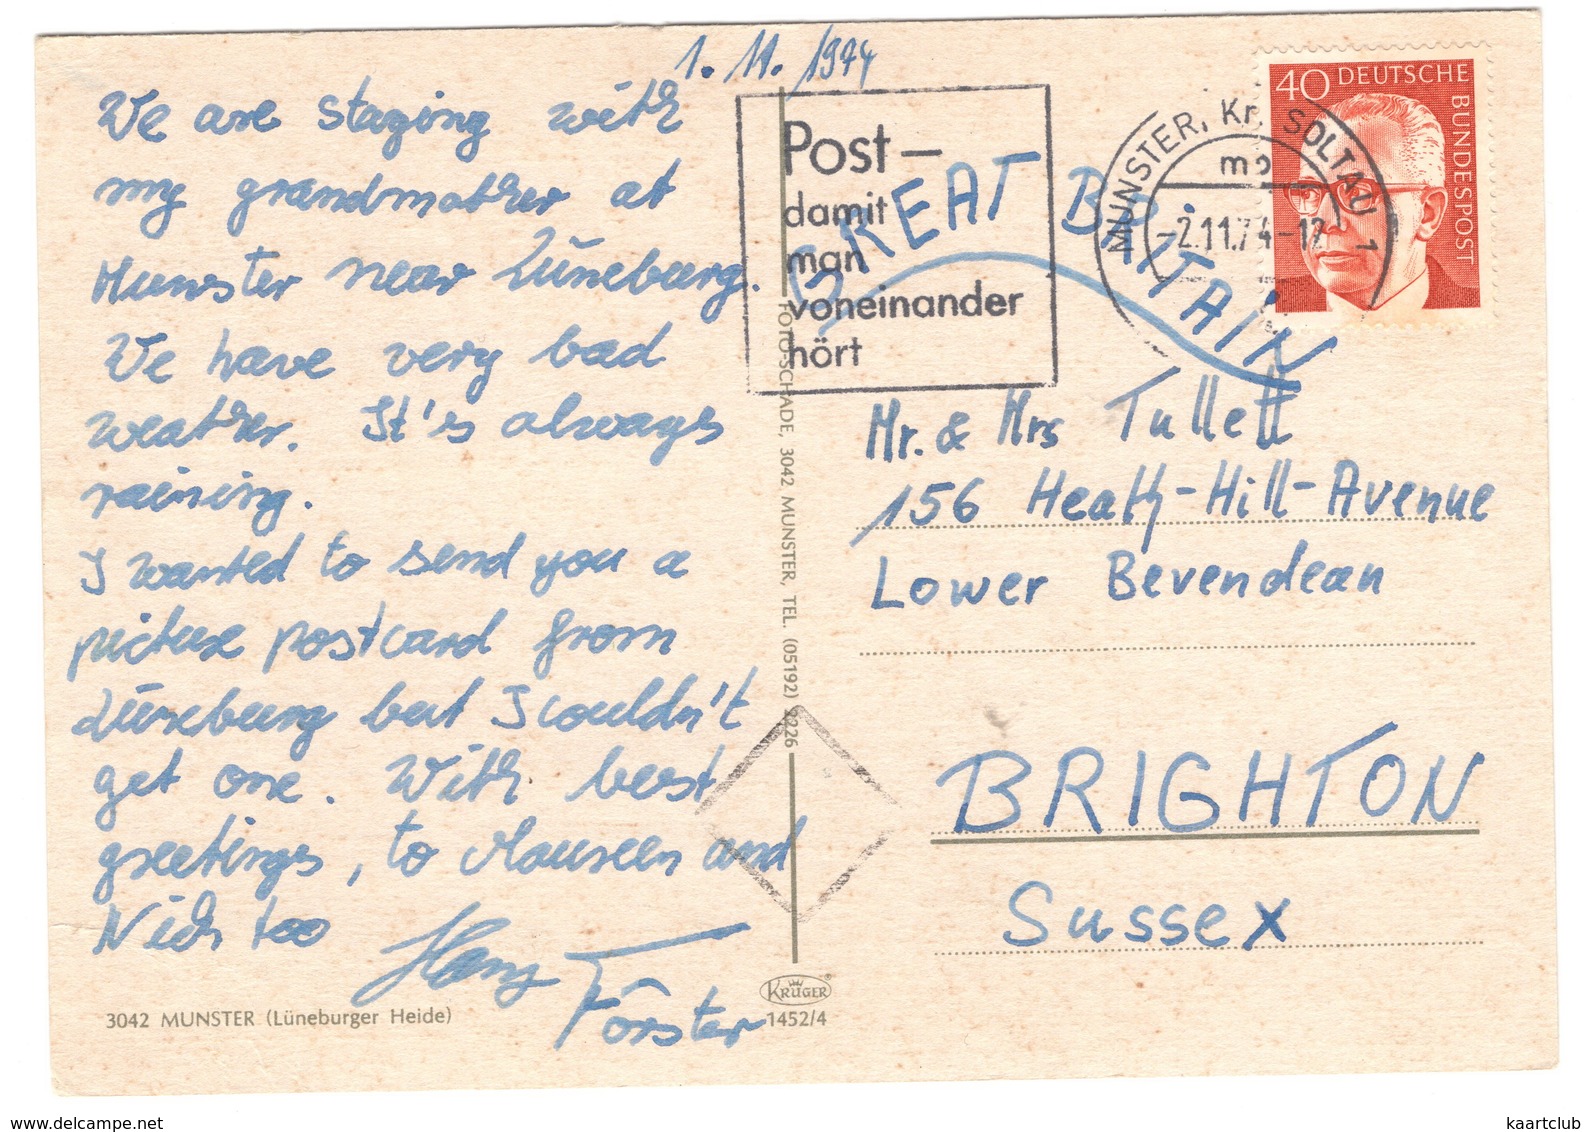 1. 11. 1974
We are staging with
my grandmother at
Munster near Lüneburg.
We have very bad
weather. It's always
raining.
I wanted to send you a
picture postcard from
Lüneburg but I couldn't
get one. With best
greetings, to Maureen and
Nick too
Förster
3042 MUNSTER (Lüneburger Heide)
FOTO-SCHADE, 3042 MUNSTER, TEL. (05192) 2226
KRÜGER
1452/4
Post –
damit
man
voneinander
hört
MUNSTER, Kr. SOLTAU 1
-2.11.74-12
40 DEUTSCHE BUNDESPOST
GREAT BRITAIN
Mr. & Mrs Tullett
156 Heath-Hill-Avenue
Lower Bevendean
BRIGHTON
Sussex
www.delcampe.net
kaartclub